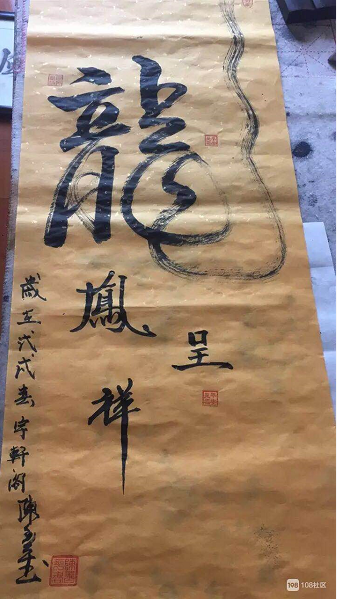 龍
鳳
呈
祥
歲在戊戌春宇軒閣陳
108社区